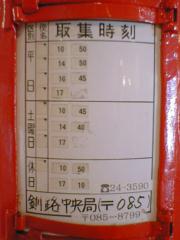 取集時刻
平日
10 50
10 45
17 10
土曜日
10 45
14 40
16 45
休日
10 50
17 10
☎24-3590
釧路中央局(〒085)
〒085-8799